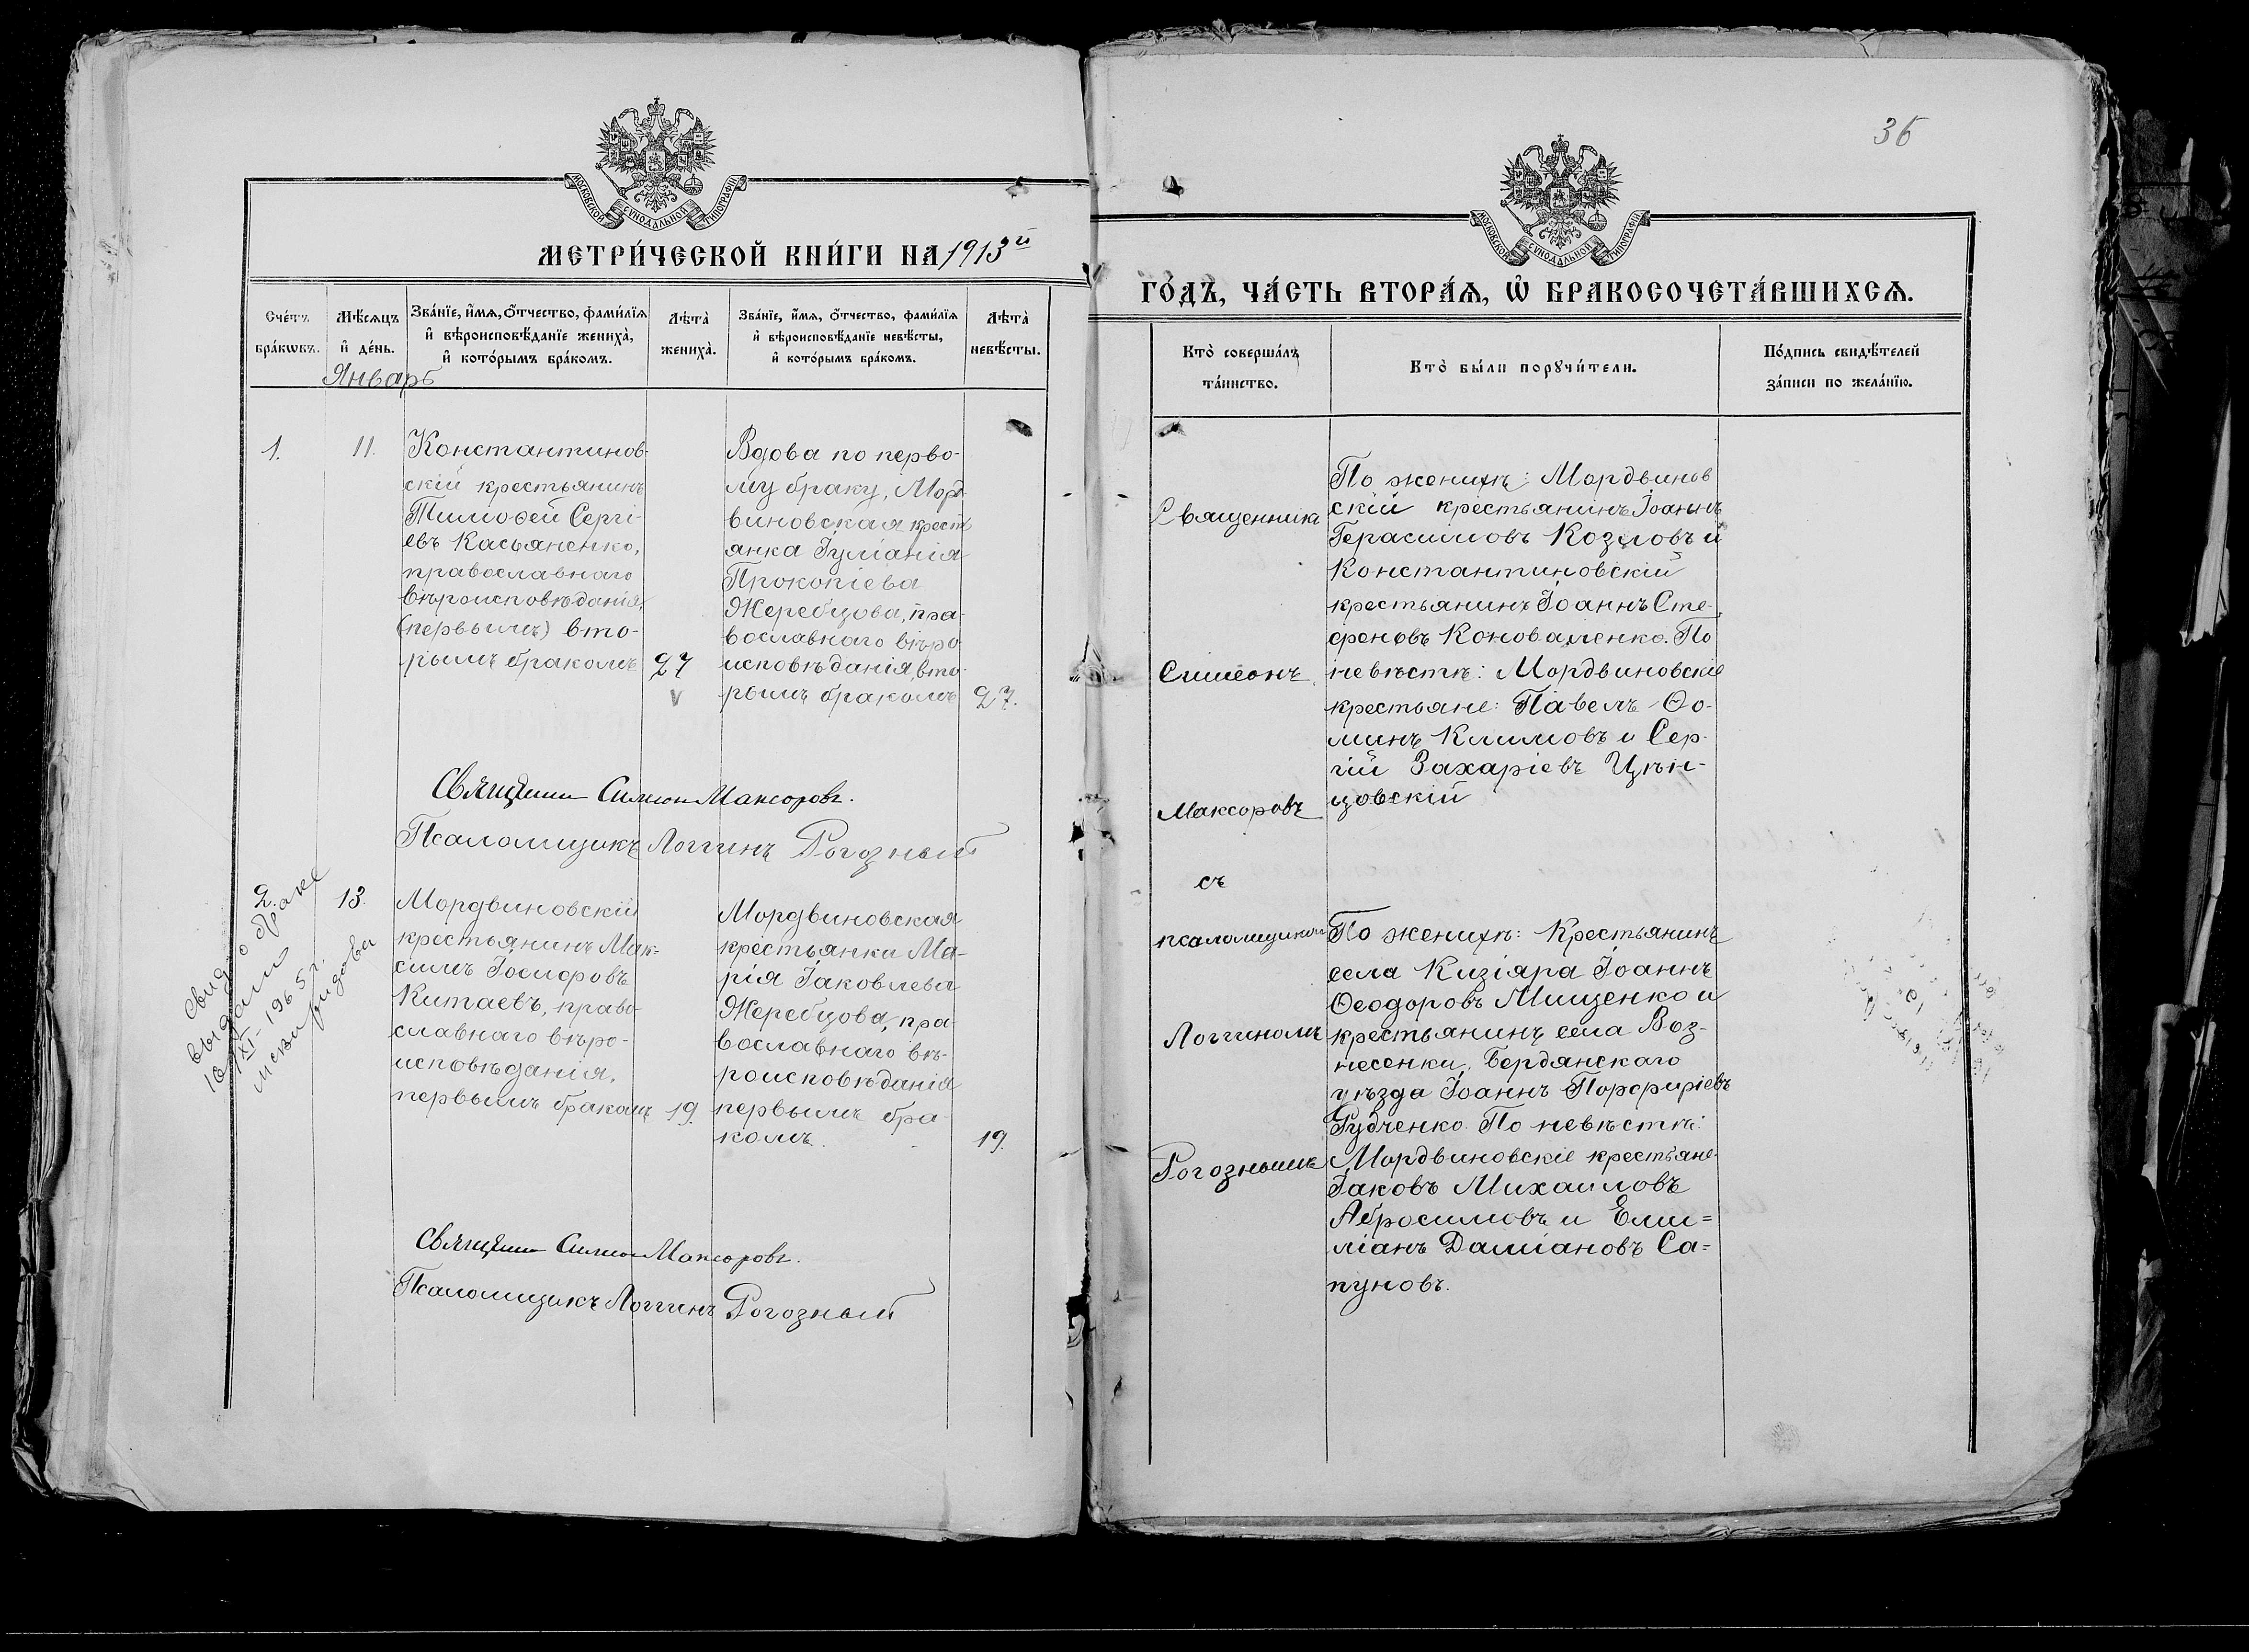 МОСКОВСКОЙ СѴНОДАЛЬНОЙ ТИПОГРАФІИ
МЕТРИ́ЧЕСКОЙ КНИ́ГИ НА 1913й
Сче́тъ
бра́кѡвъ.
Мѣ́сѧцъ
и҆ де́нь.
Январь
Зва́нїе, и҆́мѧ, ѻ҆́тчество, фами́лїѧ
и҆ вѣроисповѣ́данїе жениха̀,
и҆ кото́рымъ бра́комъ.
Лѣ́та̀
жениха̀.
Зва́нїе, и҆́мѧ, ѻ҆́тчество, фами́лїѧ
и҆ вѣроисповѣ́данїе невѣ́сты,
и҆ кото́рымъ бра́комъ.
Лѣ́та̀
невѣ́сты.
1.
11.
Константинов-
скій крестьянинъ
Тимоѳей Сергі-
евъ Касьяненко,
православнаго
вѣроисповѣданія,
(первымъ) вто-
рымъ бракомъ
27
Вдова по перво-
му браку, Морд-
виновская крестьянка Іуліанія
Прокопіева
Жеребцова, пра-
вославнаго вѣро
исповѣданія, вто
рымъ бракомъ
27.
Священникъ Симеон Максоровъ.
Псаломщикъ Логгинъ Рогозный
2.
13.
Свид. о браке
выдано
16/XI-1965г.
Мордвиновскій
крестьянинъ Мак-
симъ Іосифовъ
Китаевъ, право-
славнаго вѣро-
исповѣданія,
первымъ бракомъ
19.
Мордвиновская
крестьянка Ма-
рія Іаковлева
Жеребцова, пра-
вославнаго вѣ-
роисповѣданія
первымъ бра-
комъ.
19.
Священникъ Симеон Максоровъ.
Псаломщикъ Логгинъ Рогозный
36
МОСКОВСКОЙ СѴНОДАЛЬНОЙ ТИПОГРАФІИ
ГО́ДЪ, ЧА́СТЬ ВТОРА́Ѧ, Ѽ БРАКОСОЧЕТА́ВШИХСѦ.
Кто̀ соверша́лъ
та́инство.
Кто̀ бы́ли порꙋчи́тели.
По́дпись свидѣ́телей
за́писи по жела́нїю.
Священникъ
Симеонъ
Максоровъ
съ
псаломщикомъ
Логгиномъ
Рогознымъ
По женихѣ: Мордвинов
скій крестьянинъ Іоаннъ
Герасимовъ Козловъ и
Константиновскій
крестьянинъ Іоаннъ Сте-
феновъ Коноваленко. По
невѣстѣ: Мордвиновскіе
крестьяне: Павелъ Ѳо-
минъ Климовъ и Сер-
гій Захаріевъ Цѣн-
зовскій
По женихѣ: Крестьянинъ
села Кизіяра Іоаннъ
Ѳеодоровъ Мищенко и
крестьянинъ села Воз-
несенки, Бердянскаго
уѣзда Іоаннъ Порфиріевъ
Рудченко. По невѣстѣ:
Мордвиновскіе крестьяне
Іаковъ Михаиловъ
Абросимовъ и Еми=
ліанъ Даміановъ Са=
пуновъ.